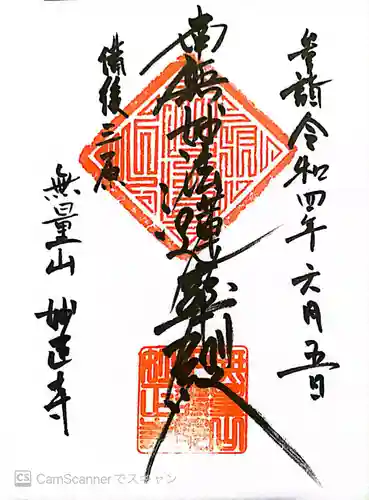 参詣令和四年六月五日
南無妙法蓮華経
備後三原
無量山妙正寺
CS CamScannerでスキャン